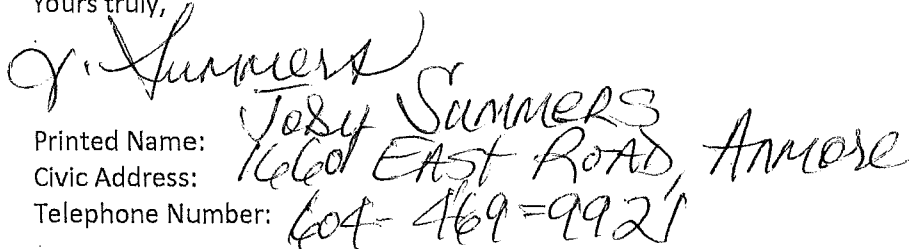 Yours truly,
J. Summers
Printed Name: Joby Summers
Civic Address: 1660 East Road, Anmore
Telephone Number: 604-469-9921